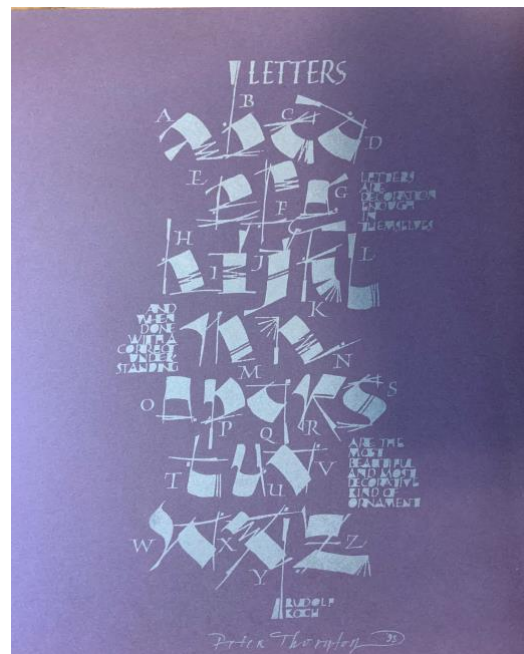 LETTERS
A B C D
E F G
LETTERS
ARE
DECORATION
ENOUGH
IN
THEMSELVES
H I J K L
AND
WHEN
DONE
WITH A
CORRECT
UNDER-
STANDING
M N
O P Q R S
ARE THE
MOST
BEAUTIFUL
AND MOST
DECORATIVE
KIND OF
ORNAMENT
T U V
W X Y Z
RUDOLF
KOCH
Peter Thornton 93